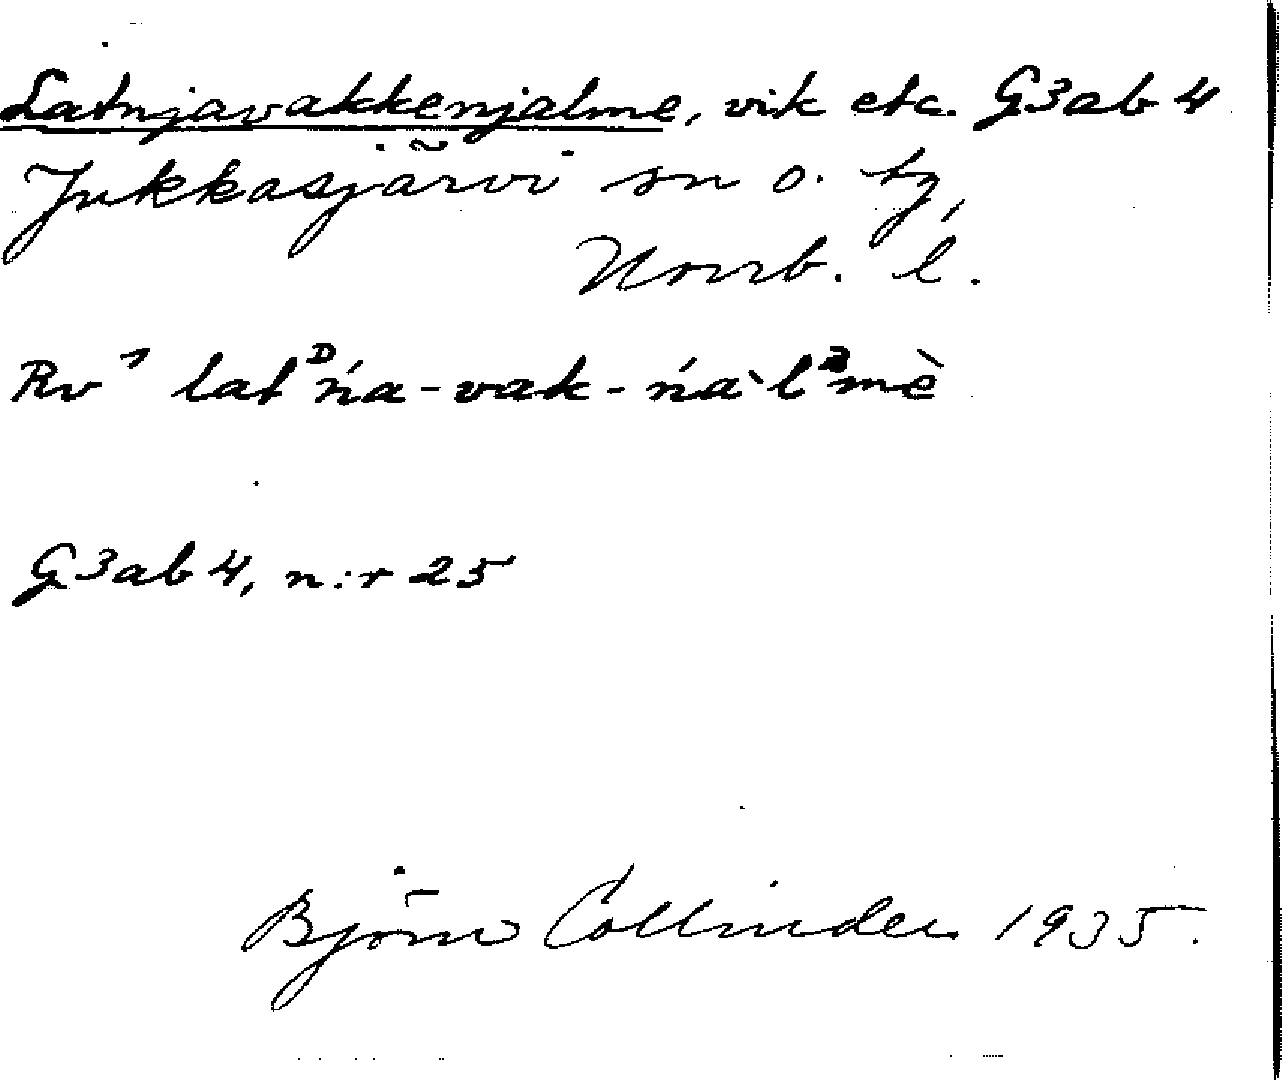 Latnjavakkenjalme, vik etc. G3ab4
Jukkasjärvi sn o. tg,
Norrb. l.
Rv⁷ latᴰńa-vak-ńàlᴮmè
G3ab4, n:r 25
Björn Collinder 1935.